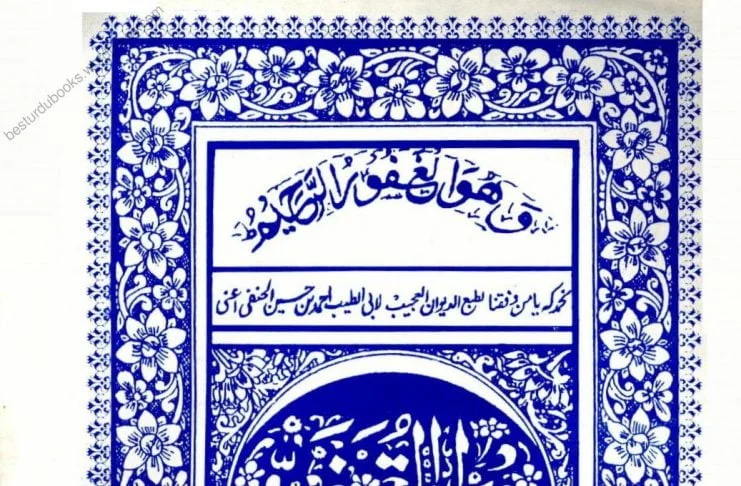 besturdubooks.
وَهُوَ الْغَفُورُ الرَّحِيمُ
نحمدك يا من وفقنا لطبع الديوان العجيب لابى الطيب احمد بن حسين الجنفى اعنى